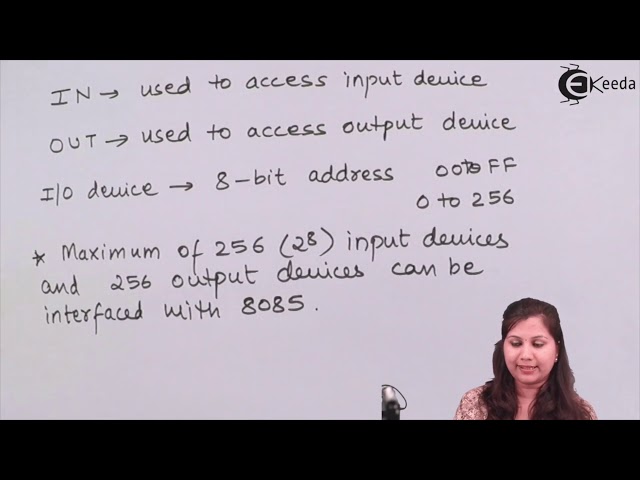 IN → used to access input device
Keeda
OUT → used to access output device
I/O device → 8-bit address 00 to FF
0 to 256
* Maximum of 256 (2⁸) input devices
and 256 output devices can be
interfaced with 8085.